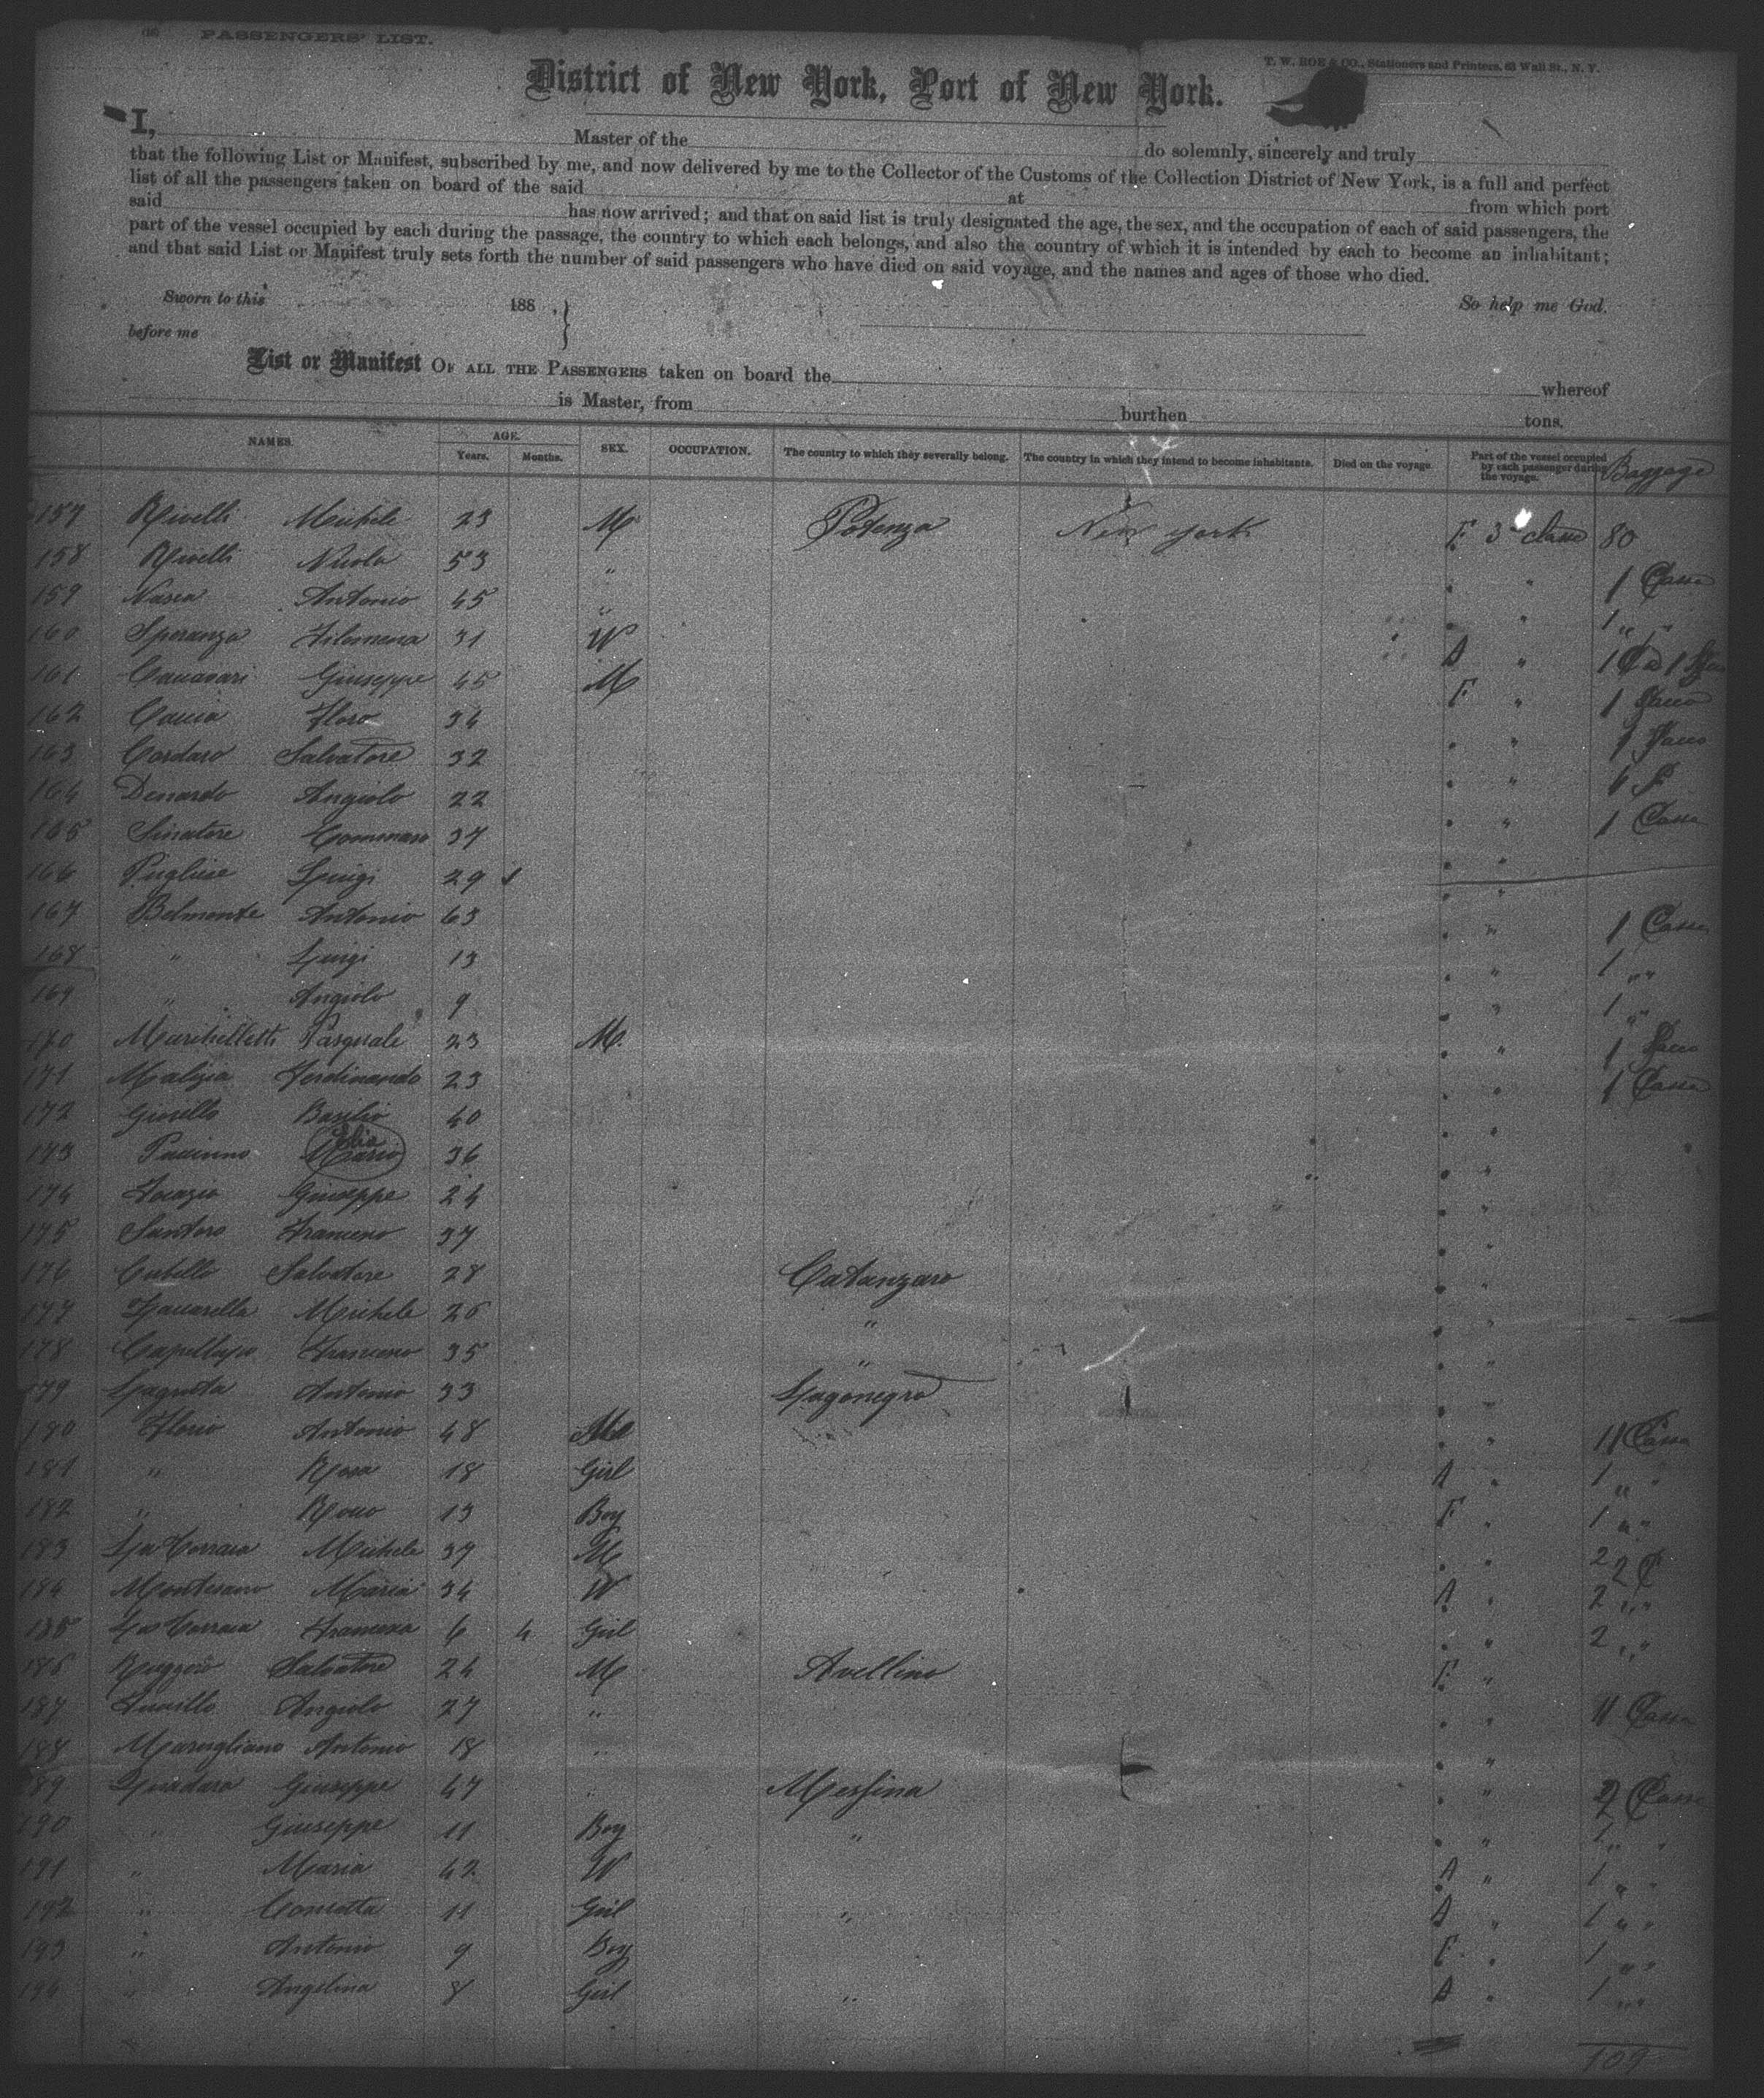 PASSENGERS' LIST.
T. W. ROE & CO., Stationers and Printers, 63 Wall St., N. Y.
District of New York, Port of New York.
I, Master of the do solemnly, sincerely and truly
that the following List or Manifest, subscribed by me, and now delivered by me to the Collector of the Customs of the Collection District of New York, is a full and perfect
list of all the passengers taken on board of the said at from which port
said has now arrived; and that on said list is truly designated the age, the sex, and the occupation of each of said passengers, the
part of the vessel occupied by each during the passage, the country to which each belongs, and also the country of which it is intended by each to become an inhabitant;
and that said List or Manifest truly sets forth the number of said passengers who have died on said voyage, and the names and ages of those who died.
Sworn to this 188 . } So help me God.
before me
List or Manifest OF ALL THE PASSENGERS taken on board the whereof
is Master, from burthen tons.
NAMES. AGE. Years. Months. SEX. OCCUPATION. The country to which they severally belong. The country in which they intend to become inhabitants. Died on the voyage. Part of the vessel occupied by each passenger during the voyage. Baggage
157 Rivelli Michele 23 M Potenza New York F 3 classe 80
158 Rivelli Nicola 53 " . " 1 Cassa
159 Antonio 45 " . " 1 " "
160 Speranza Filomena 31 W A "
161 Giuseppe 45 M F " 1 Sacco
162 Floro 34 . " 1 Sacco
163 Cordaro Salvatore 32 . "
164 Denardo Angiolo 22 . " 1 Cassa
165 Sinatore Tommaso 37 . "
166 Pugliese Luigi 29 . "
167 Belmonte Antonio 63 . " 1 Cassa
168 " Luigi 13 . " 1 " "
169 " Angiolo 9 . " 1 " "
170 Pasquale 23 M. . " 1 Sacco
171 Malizia Ferdinando 23 . " 1 Cassa
172 Basilio 40 . "
173 Elia Mario 36 . "
174 Giuseppe 24 . "
175 Santoro Francesco 37 . "
176 Cubello Salvatore 28 Catanzaro . "
177 Zaccarella Michele 26 " . "
178 Francesco 35 " . "
179 Antonio 33 Lagonegro . "
180 Florio Antonio 48 . " Cassa
181 " Rosa 18 Girl A " 1 " "
182 " Rocco 13 Boy F " 1 " "
183 Michele 37 M . "
184 Montesano Maria 34 W A " 2 " "
185 Francesca 6 4 Girl . " 2 " "
186 Salvatore 24 M Avellino F "
187 Angiolo 27 " . " Cassa
188 Antonio 18 " . "
189 Giuseppe 47 " Messina . " 2 Casse
190 " Giuseppe 11 Boy " . " 1 " "
191 " Maria 42 W A " 1 " "
192 " Concetta 11 Girl " A " 1 " "
193 " Antonio 9 Boy F " 1 " "
194 " Angelina 8 Girl " A " 1 " "
109